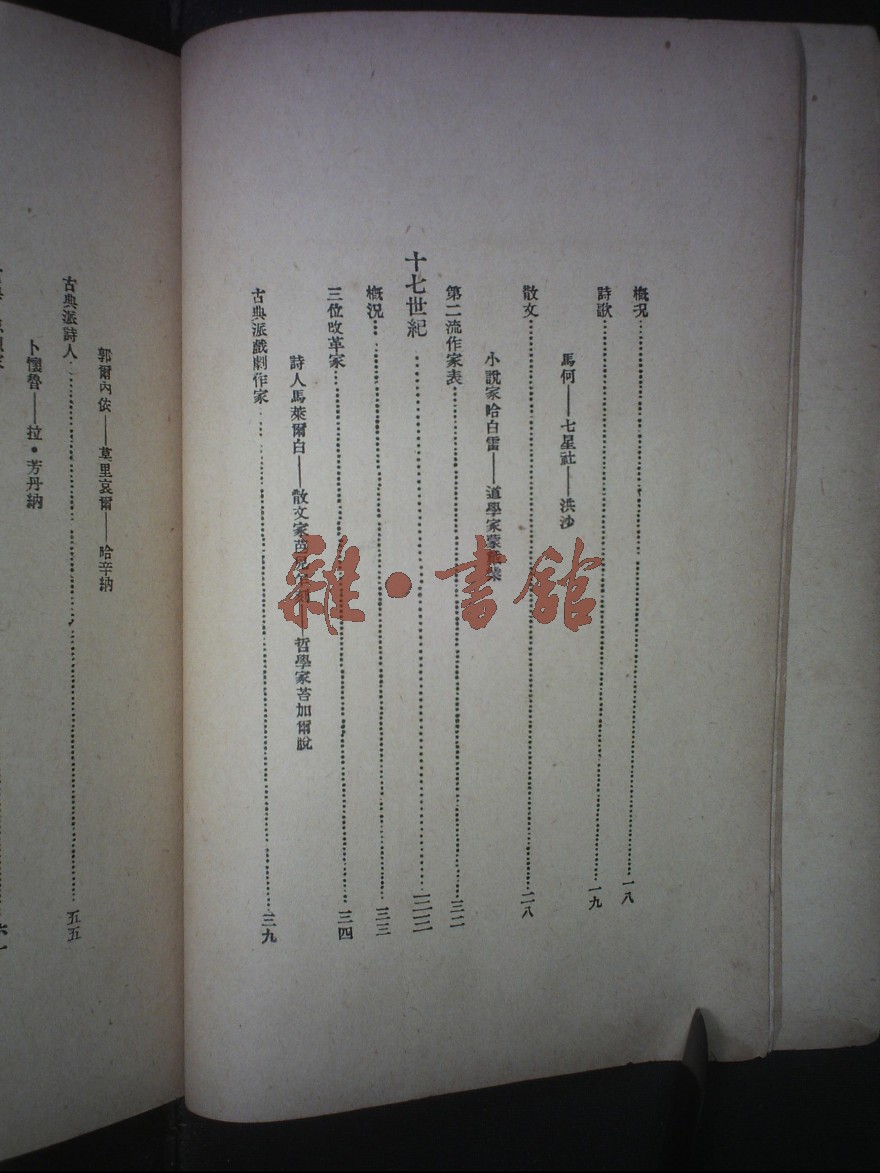 概況……一八
詩歌……一九
馬何——七星社——洪沙
散文……二八
小說家哈白雷——道學家蒙
第二流作家表……三二
十七世紀……三三
概況……三三
三位改革家……三四
詩人馬萊爾白——散文家——哲學家苔加爾脫
古典派戲劇作家……三九
郭爾內依——莫里哀爾——哈辛納
古典派詩人……五五
卜懷魯——拉•芳丹納
雜•書館